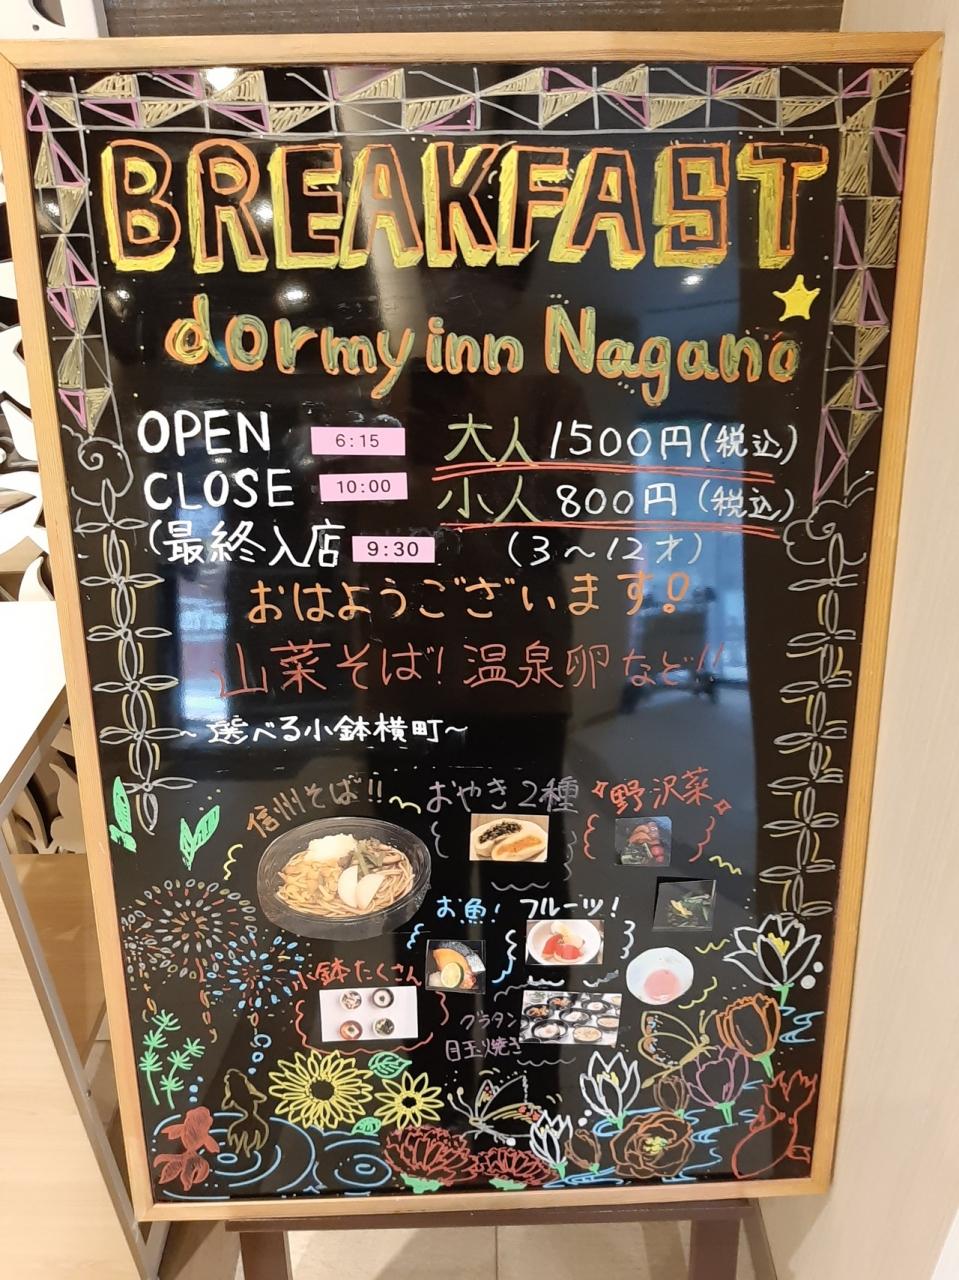 BREAKFAST
dormy inn Nagano
OPEN 6:15 大人 1500円(税込)
CLOSE 10:00 小人 800円(税込)
(最終入店 9:30 (3~12才)
おはようございます!
山菜そば!温泉卵など!!
~選べる小鉢横町~
信州そば!! おやき2種 野沢菜
お魚! フルーツ!
小鉢たくさん
グラタン
目玉焼き